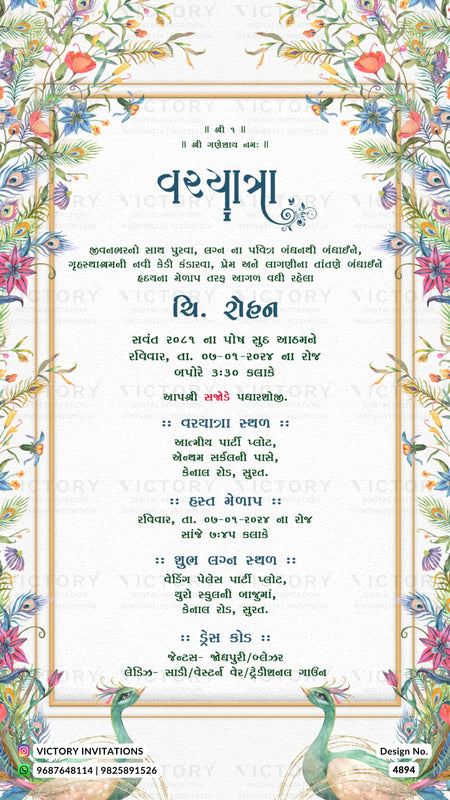 ॥ શ્રી ૧ ॥
॥ શ્રી ગણેશાય નમઃ ॥
વરયાત્રા
જીવનભરનો સાથ પુરવા, લગ્ન ના પવિત્ર બંધનથી બંધાઈને,
ગૃહસ્થાશ્રમની નવી કેડી કંડારવા, પ્રેમ અને લાગણીના તાંતણે બંધાઈને
હૃદયના મેળાપ તરફ આગળ વધી રહેલા
ચિ. રોહન
સવંત ૨૦૮૧ ના પોષ સુદ આઠમને
રવિવાર, તા. ૦૭-૦૧-૨૦૨૪ ના રોજ
બપોરે ૩:૩૦ કલાકે
આપશ્રી સજોડે પધારશોજી.
:: વરયાત્રા સ્થળ ::
આત્મીય પાર્ટી પ્લોટ,
એન્થમ સર્કલની પાસે,
કેનાલ રોડ, સુરત.
:: હસ્ત મેળાપ ::
રવિવાર, તા. ૦૭-૦૧-૨૦૨૪ ના રોજ
સાંજે ૭:૪૫ કલાકે
:: શુભ લગ્ન સ્થળ ::
વેડિંગ પેલેસ પાર્ટી પ્લોટ,
યુરો સ્કુલની બાજુમાં,
કેનાલ રોડ, સુરત.
:: ડ્રેસ કોડ ::
જેન્ટસ- જોધપુરી/બ્લેઝર
લેડિઝ- સાડી/વેસ્ટર્ન વેર/ટ્રેડીશનલ ગાઉન
VICTORY INVITATIONS
9687648114 | 9825891526
Design No.
4894